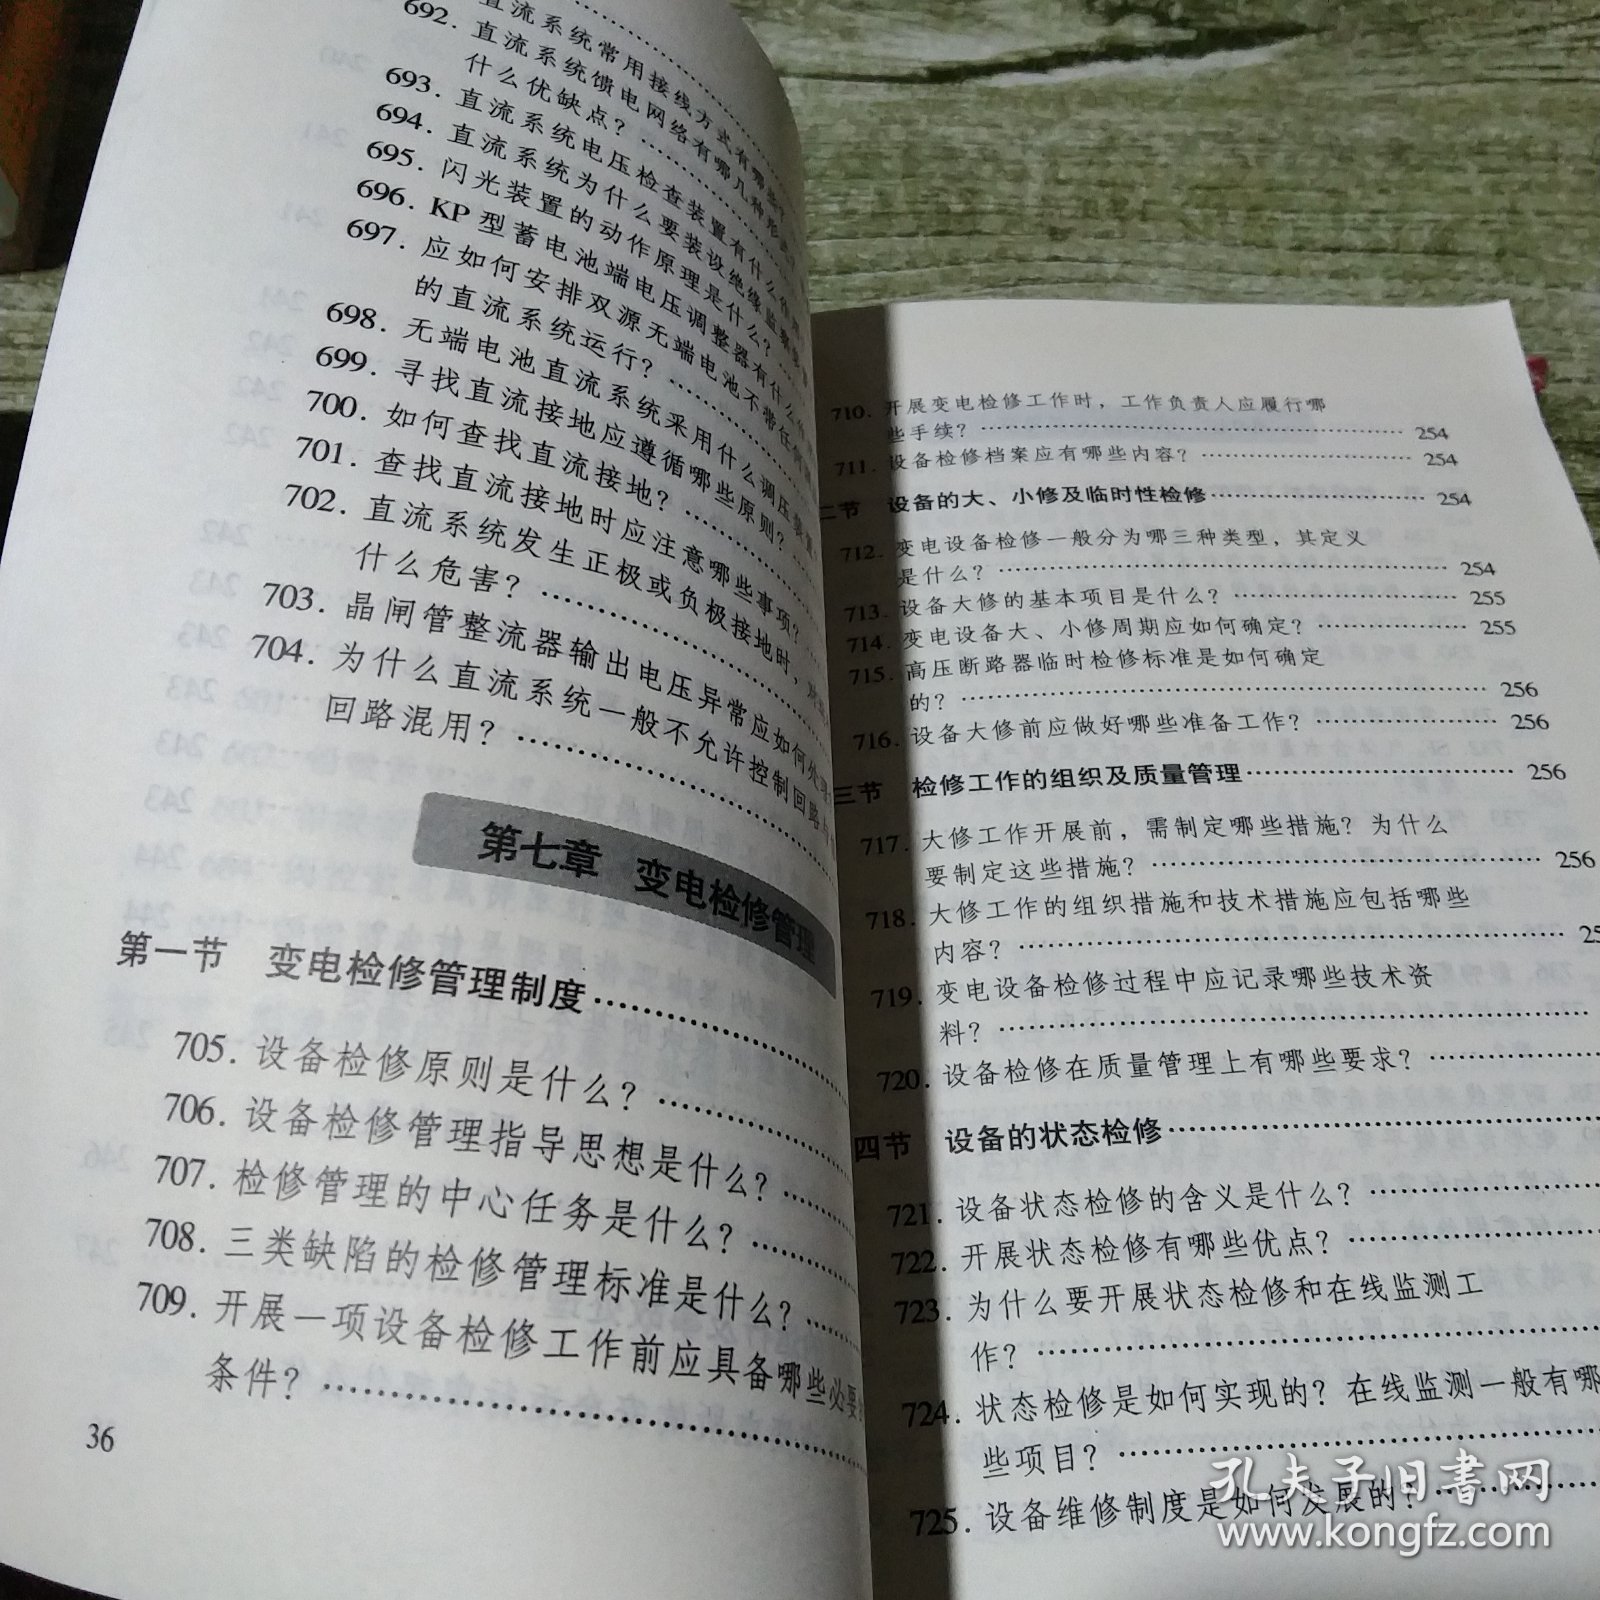 直流系统常用接线方式有哪些?
692. 直流系统馈电网络有哪几种形式
什么优缺点?
693. 直流系统电压检查装置有什么作用
694. 直流系统为什么要装设绝缘监察装
695. 闪光装置的动作原理是什么?
696. KP型蓄电池端电压调整器有什么作
697. 应如何安排双源无端电池不带任何
的直流系统运行?
698. 无端电池直流系统采用什么调压装置
699. 寻找直流接地应遵循哪些原则?
700. 如何查找直流接地?
701. 查找直流接地时应注意哪些事项?
702. 直流系统发生正极或负极接地时,对
什么危害?
703. 晶闸管整流器输出电压异常应如何处理
704. 为什么直流系统一般不允许控制回路
回路混用?
第七章 变电检修管理
第一节 变电检修管理制度
705. 设备检修原则是什么?
706. 设备检修管理指导思想是什么?
707. 检修管理的中心任务是什么?
708. 三类缺陷的检修管理标准是什么?
709. 开展一项设备检修工作前应具备哪些必要
条件?
36
710. 开展变电检修工作时,工作负责人应履行哪
些手续? 254
711. 设备检修档案应有哪些内容? 254
二节 设备的大、小修及临时性检修 254
712. 变电设备检修一般分为哪三种类型,其定义
是什么? 254
713. 设备大修的基本项目是什么? 255
714. 变电设备大、小修周期应如何确定? 255
715. 高压断路器临时检修标准是如何确定
的? 256
716. 设备大修前应做好哪些准备工作? 256
三节 检修工作的组织及质量管理 256
717. 大修工作开展前,需制定哪些措施?为什么
要制定这些措施? 256
718. 大修工作的组织措施和技术措施应包括哪些
内容? 25
719. 变电设备检修过程中应记录哪些技术资
料?
720. 设备检修在质量管理上有哪些要求?
四节 设备的状态检修
721. 设备状态检修的含义是什么?
722. 开展状态检修有哪些优点?
723. 为什么要开展状态检修和在线监测工
作?
724. 状态检修是如何实现的?在线监测一般有哪
些项目?
725. 设备维修制度是如何发展的?
孔夫子旧书网
www.kongfz.com